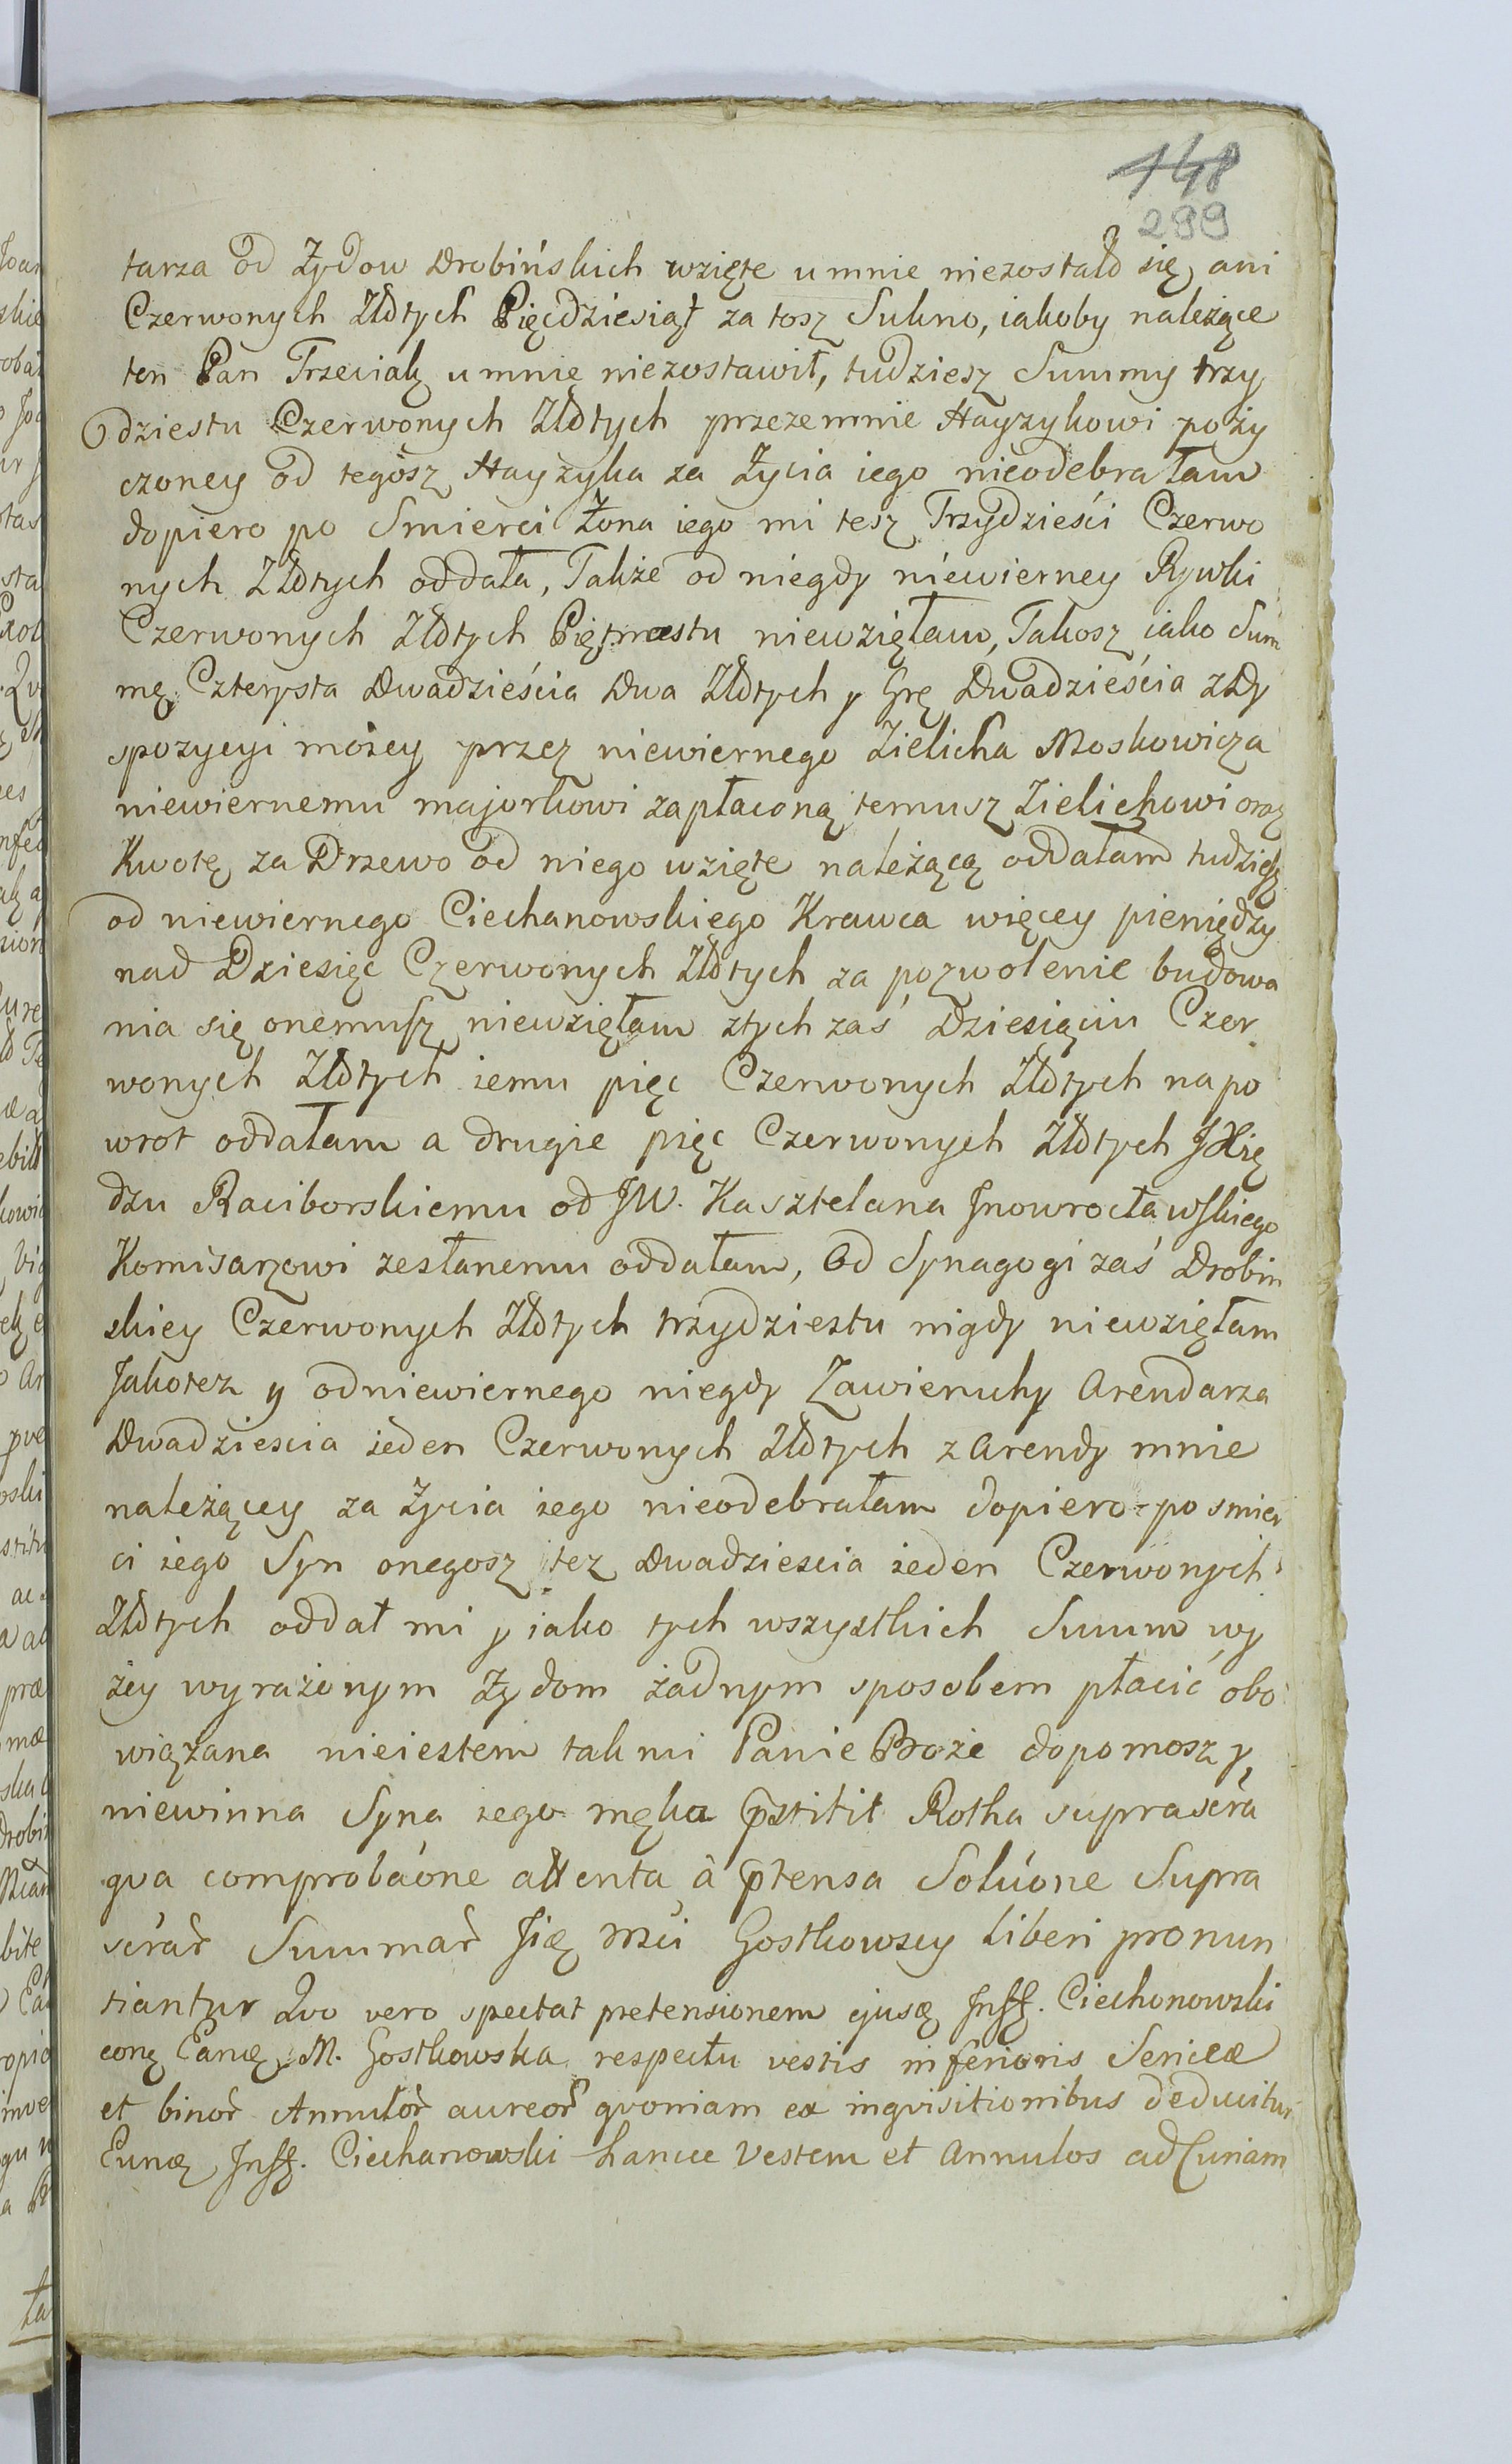 148
299
tarza od Żydow Drobińskich wzięte umnie niezostało się ani
Czerwonych Złotych Pięcdziesiąt za tosz Sukno, iakoby należące
ten Pan Trzeciak umnię niezostawił, tudziesz Summy trzy
dziestu Czerwonych Złotych przezemnie Hayzykowi poży
czoney od tegosz Hayzyka za Życia iego nieodebrałam
dopiero po Smierci Żona iego mi tesz Trzydzieści Czerwo
nych Złotych oddała, Takze od niegdy niewierney Rywki
Czerwonych Złotych Piętnastu niewzięłam, Takosz iako Sum
mę Czterysta Dwadzieścia Dwa Złotych y Grę Dwadzieścia z Dy
spozycyi moiey przez niewiernego Zielicha Moskowicza
niewiernemu majorkowi zapłaconą temusz Zielichowi oraz
Kwotę za Drzewo od niego wzięte należącą oddałam tudziesz
od niewiernego Ciechanowskiego Krawca więcey pieniędzy
nad Dziesięc Czerwonych Złotych za pozwolenie budowa
nia się onemusz niewzięłam ztych zaś Dziesięciu Czer
wonych Złotych iemu pięc Czerwonych Złotych napo
wrot oddałam a drugie pięc Czerwonych Złotych JXię
dzu Raciborskiemu od JW. Kasztelana Jnowrocławskiego
Komisarzowi zesłanemu oddałam, Od Synagogi zaś Drobin
skiey Czerwonych Złotych trzydziestu nigdy niewzięłam
Jakotez y odniewiernego niegdy Zawieruchy Arendarza
Dwadziescia ieden Czerwonych Złotych z Arendy mnie
należącey za Życia iego nieodebrałam dopiero po smier
ci iego Syn onegosz tez Dwadziescia ieden Czerwonych
Złotych oddał mi y iako tych wszystkich Summ wy
żey wyrażonym Żydom żadnym sposobem płacić obo
wiązana nieiestem tak mi Panie Boże dopomosz y
niewinna Syna iego męka p̃stitit Rotha supraścrã
qva comprobaóne attenta à p̃tensa Solúone Supra
scrár̃ Summar̃ Jię Mści Gostkowscy liberi pronun
tiantur Qvo vero spectat pretensionem ejusꝫ Jnffꝫ. Ciechonowski
conꝫ Eanꝫ M. Gostkowska respectu vestis inferioris Sericæ
et binor̃ Annulor̃ aureor̃ qvoniam ex inqvisitionibus deducitur
Eunꝫ Jnffꝫ. Ciechanowski hancce Vestem et Annulos ad Curiam